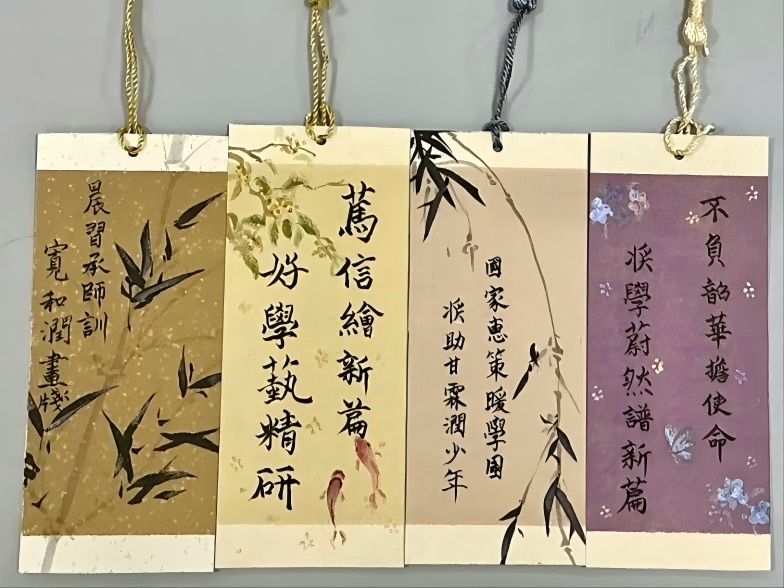 晨習承師訓
寬和潤畫牋
篤信繪新篇
好學藝精研
國家惠策暖學園
奖助甘霖潤少年
不負韶華擔使命
奖學蔚然譜新篇